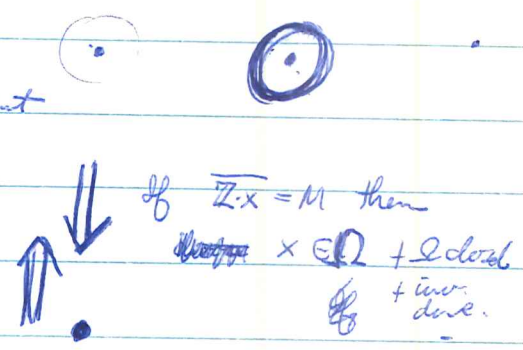 If \overline{ℤ·x} = M then
x ∈ Ω + Ω closed
+ inv.